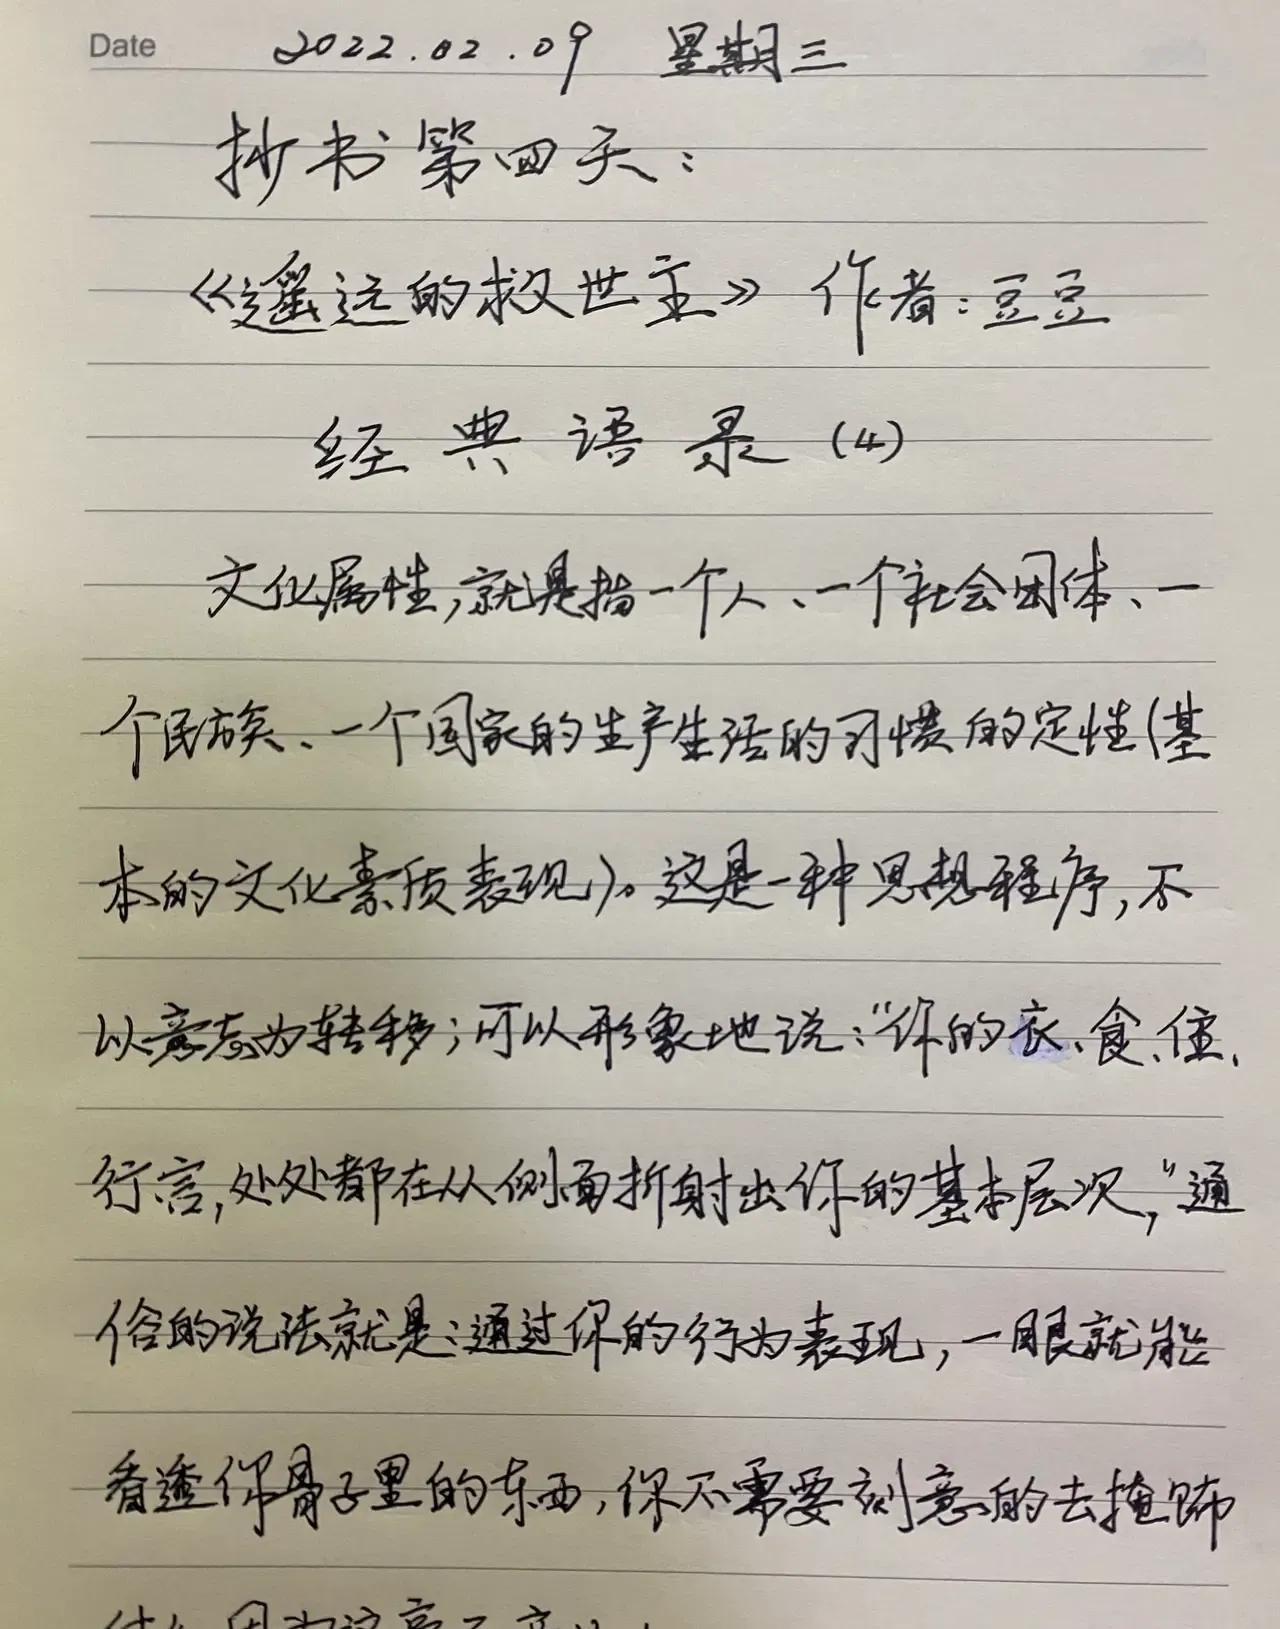 Date 2022.02.09 星期三
抄书第四天：
《遥远的救世主》作者：豆豆
经典语录（4）
文化属性，就是指一个人、一个社会团体、一
个民族、一个国家的生产生活的习惯的定性（基
本的文化素质表现）。这是一种思想程序，不
以意志为转移；可以形象地说：“你的衣、食、住、
行、言，处处都在从侧面折射出你的基本层次，”通
俗的说法就是：通过你的行为表现，一眼就能
看透你骨子里的东西，你不需要刻意的去掩饰